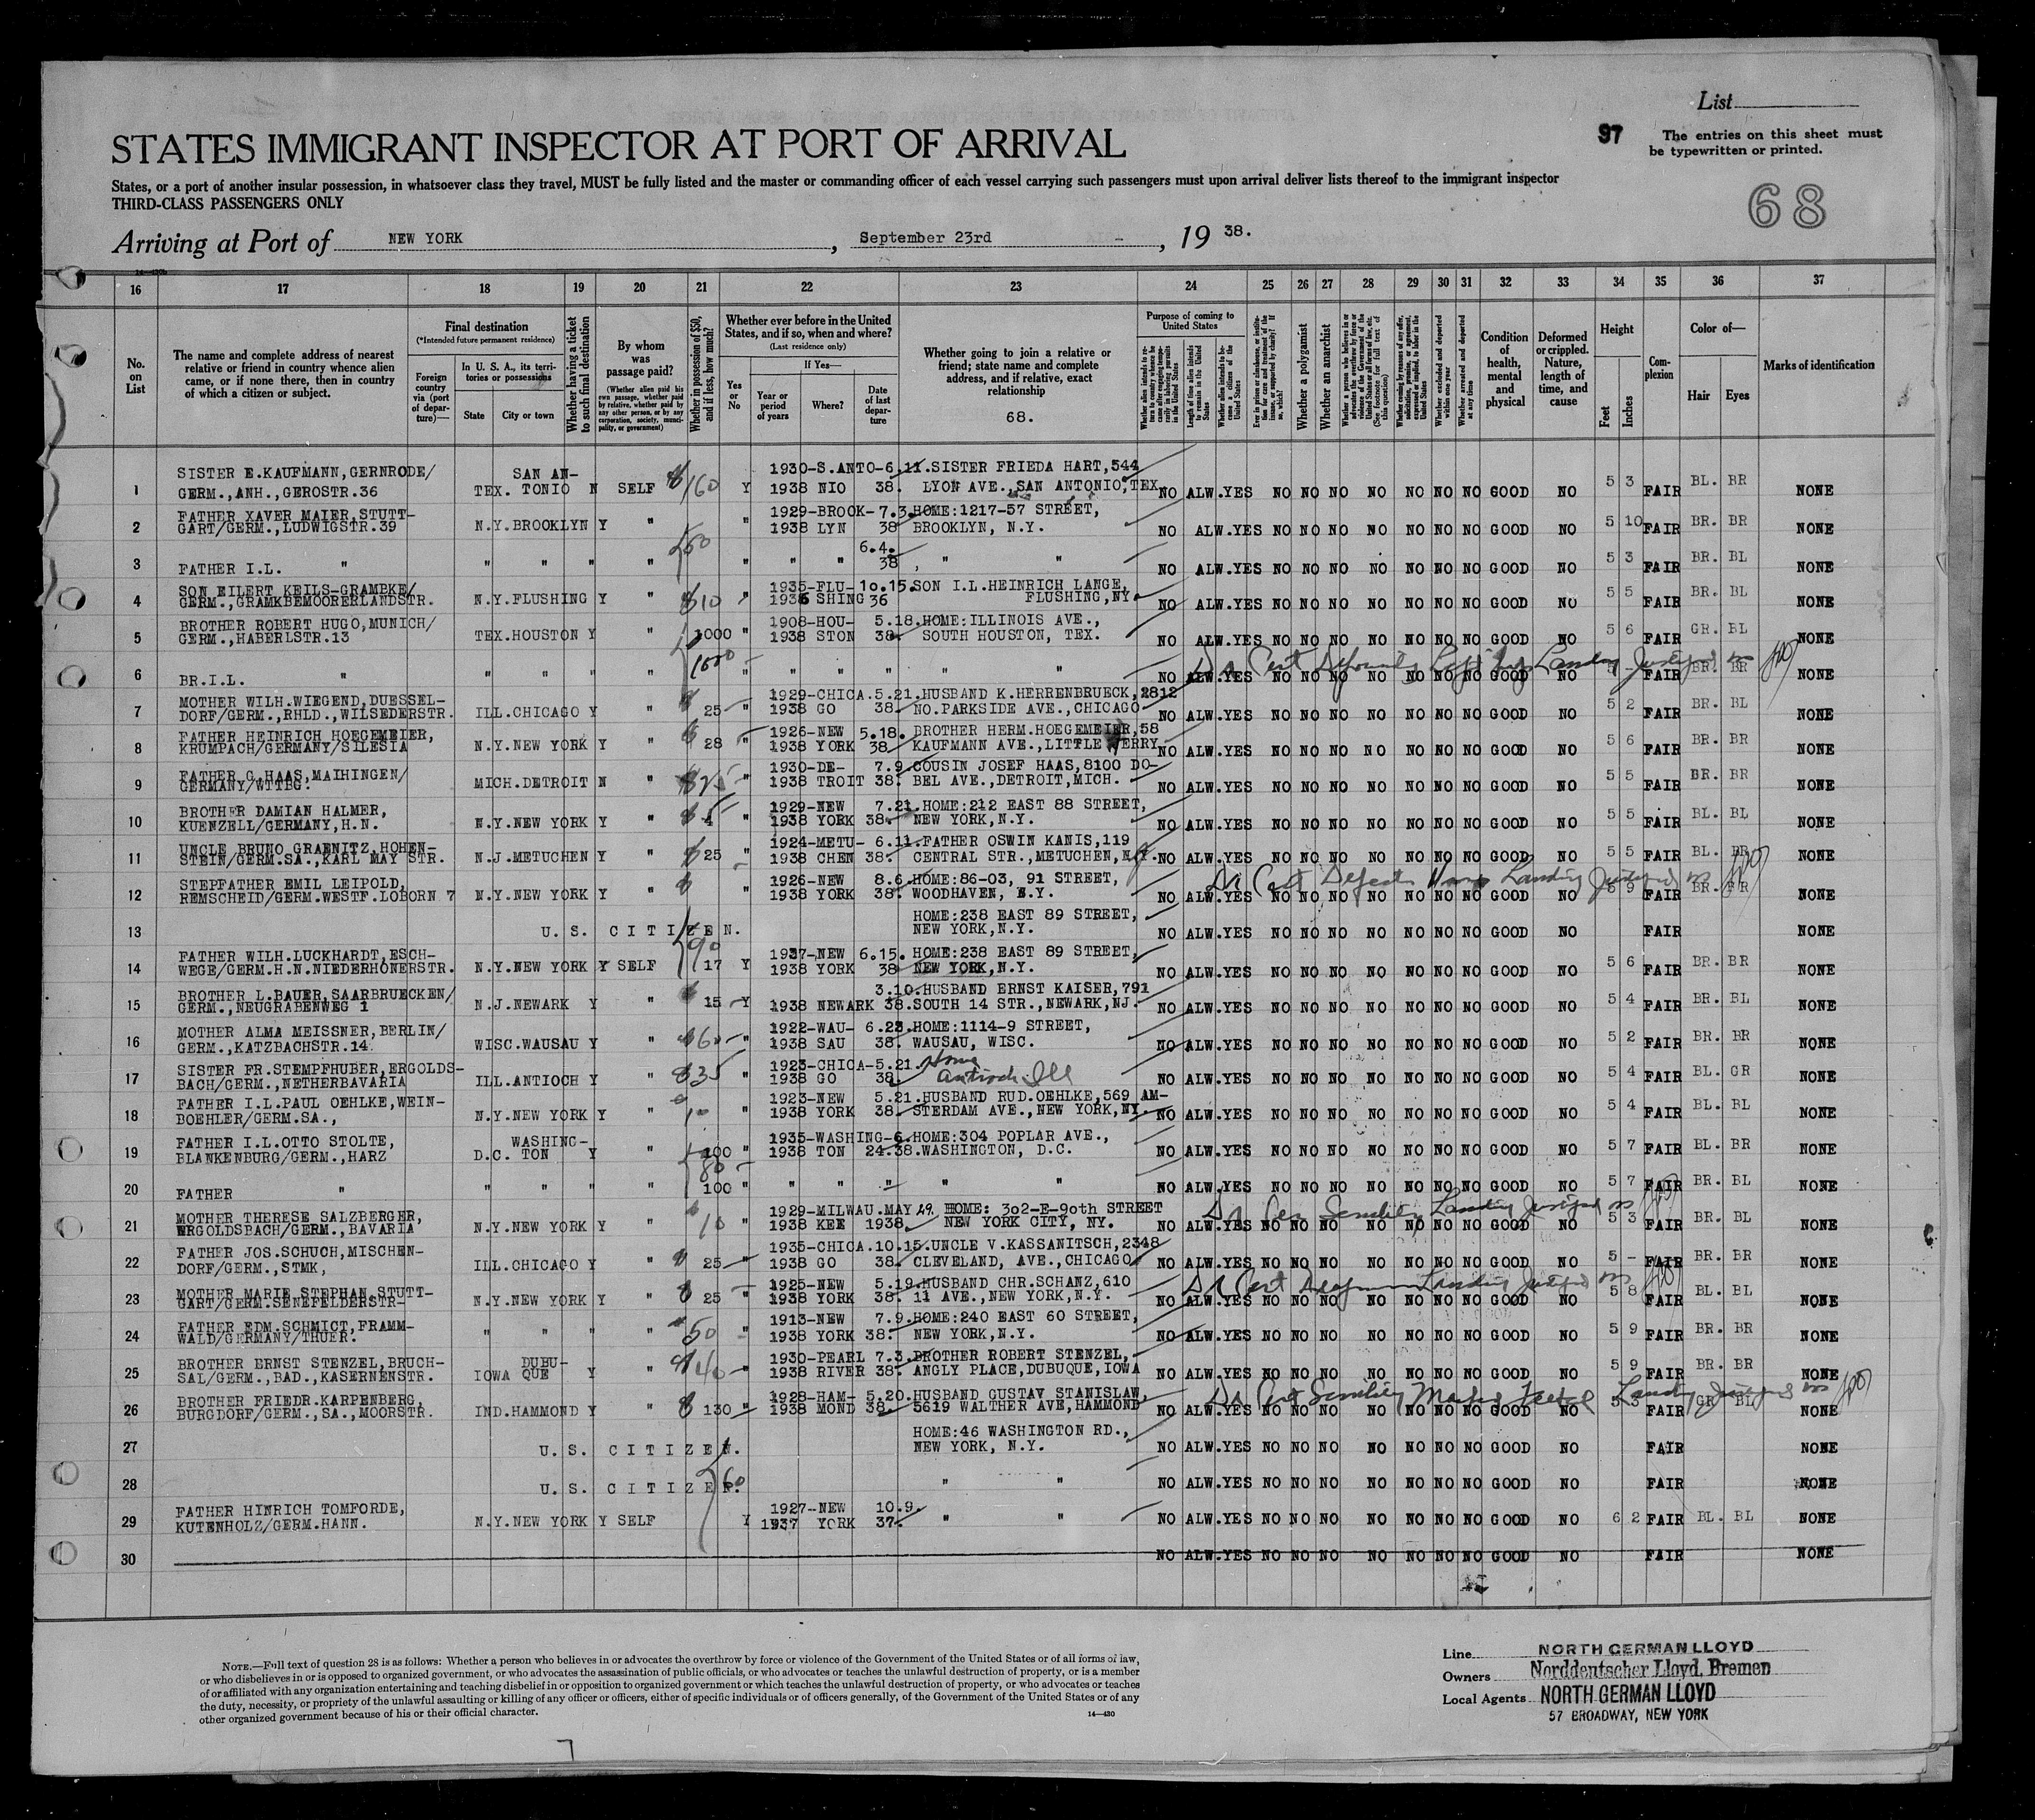 List
97
The entries on this sheet must
be typewritten or printed.
STATES IMMIGRANT INSPECTOR AT PORT OF ARRIVAL
States, or a port of another insular possession, in whatsoever class they travel, MUST be fully listed and the master or commanding officer of each vessel carrying such passengers must upon arrival deliver lists thereof to the immigrant inspector
THIRD-CLASS PASSENGERS ONLY
68
Arriving at Port of NEW YORK, September 23rd, 19 38.
16 17 18 19 20 21 22 23 24 25 26 27 28 29 30 31 32 33 34 35 36 37
No. on List
The name and complete address of nearest relative or friend in country whence alien came, or if none there, then in country of which a citizen or subject.
Final destination
(*Intended future permanent residence)
Foreign country via (port of departure)—
In U. S. A., its territories or possessions
State
City or town
Whether having a ticket to such final destination
By whom was passage paid?
(Whether alien paid his own passage, whether paid by relative, whether paid by any other person, or by any corporation, society, municipality, or government)
Whether in possession of $50, and if less, how much?
Whether ever before in the United States, and if so, when and where?
(Last residence only)
Yes or No
If Yes—
Year or period of years
Where?
Date of last departure
Whether going to join a relative or friend; state name and complete address, and if relative, exact relationship
68.
Purpose of coming to United States
Whether a polygamist
Whether an anarchist
Condition of health, mental and physical
Deformed or crippled. Nature, length of time, and cause
Height
Feet
Inches
Complexion
Color of—
Hair
Eyes
Marks of identification
SISTER E.KAUFMANN,GERNRODE/ SAN AN- 1930-S.ANTO-6.11.SISTER FRIEDA HART,544
1 GERM.,ANH.,GEROSTR.36 TEX. TONIO N SELF $160 Y 1938 NIO 38. LYON AVE.,SAN ANTONIO,TEX. NO ALW.YES NO NO NO NO NO NO NO GOOD NO 5 3 FAIR BL. BR NONE
FATHER XAVER MAIER,STUTT- 1929-BROOK-7.3.HOME:1217-57 STREET,
2 GART/GERM.,LUDWIGSTR.39 N.Y.BROOKLYN Y " " 1938 LYN 38 BROOKLYN, N.Y. NO ALW.YES NO NO NO NO NO NO NO GOOD NO 5 10 FAIR BR. BR NONE
6.4.
3 FATHER I.L. " " " " " " " " 38 " " NO ALW.YES NO NO NO NO NO NO NO GOOD NO 5 3 FAIR BR. BL NONE
SON EILERT KEILS-GRAMBKE/ 1935-FLU-10.15.SON I.L.HEINRICH LANGE,
4 GERM.,GRAMKBEMOORERLANDSTR. N.Y.FLUSHING Y " $10 " 1936 SHING 36 FLUSHING,NY. NO ALW.YES NO NO NO NO NO NO NO GOOD NO 5 5 FAIR BR. BL NONE
BROTHER ROBERT HUGO,MUNICH/ 1908-HOU- 5.18.HOME:ILLINOIS AVE.,
5 GERM.,HABERLSTR.13 TEX.HOUSTON Y " 1000 " 1938 STON 38. SOUTH HOUSTON, TEX. NO ALW.YES NO NO NO NO NO NO NO GOOD NO 5 6 FAIR GR. BL NONE
6 BR.I.L. " " " " " 1000 " " " " " NO ALW.YES NO NO NO NO NO NO NO GOOD NO FAIR BR. BR NONE
MOTHER WILH.WIEGEND,DUESSEL- 1929-CHICA.5.21.HUSBAND K.HERRENBRUECK,2812
7 DORF/GERM.,RHLD.,WILSEDERSTR. ILL.CHICAGO Y " 25 " 1938 GO 38. NO.PARKSIDE AVE.,CHICAGO NO ALW.YES NO NO NO NO NO NO NO GOOD NO 5 2 FAIR BR. BL NONE
FATHER HEINRICH HOEGEMEIER, 1926-NEW 5.18. BROTHER HERM.HOEGEMEIER,58
8 KRUMPACH/GERMANY/SILESIA N.Y.NEW YORK Y " 28 " 1938 YORK 38. KAUFMANN AVE.,LITTLE FERRY NO ALW.YES NO NO NO NO NO NO NO GOOD NO 5 6 FAIR BR. BR NONE
FATHER G.HAAS,MAIHINGEN/ 1930-DE- 7.9.COUSIN JOSEF HAAS,8100 DO-
9 GERMANY/WTTBG. MICH.DETROIT N " $25 " 1938 TROIT 38. BEL AVE.,DETROIT,MICH. NO ALW.YES NO NO NO NO NO NO NO GOOD NO 5 5 FAIR BR. BR NONE
BROTHER DAMIAN HALMER, 1929-NEW 7.21.HOME:212 EAST 88 STREET,
10 KUENZELL/GERMANY,H.N. N.Y.NEW YORK Y " " 1938 YORK 38. NEW YORK,N.Y. NO ALW.YES NO NO NO NO NO NO NO GOOD NO 5 5 FAIR BL. BL NONE
UNCLE BRUNO GRAENITZ,HOHEN- 1924-METU- 6.11.FATHER OSWIN KANIS,119
11 STEIN/GERM.SA.,KARL MAY STR. N.J.METUCHEN Y " $25 " 1938 CHEN 38. CENTRAL STR.,METUCHEN, NO ALW.YES NO NO NO NO NO NO NO GOOD NO 5 5 FAIR BL. BR NONE
STEPFATHER EMIL LEIPOLD, 1926-NEW 8.6.HOME:86-03, 91 STREET,
12 REMSCHEID/GERM.WESTF.LOBORN 7 N.Y.NEW YORK Y " " 1938 YORK 38. WOODHAVEN, N.Y. NO ALW.YES NO NO NO NO NO NO NO GOOD NO 5 9 FAIR BR. BR NONE
HOME:238 EAST 89 STREET,
13 U. S. CITIZEN. NEW YORK,N.Y. NO ALW.YES NO NO NO NO NO NO NO GOOD NO FAIR NONE
FATHER WILH.LUCKHARDT,ESCH- 90 1937-NEW 6.15. HOME:238 EAST 89 STREET,
14 WEGE/GERM.H.N.NIEDERHONERSTR. N.Y.NEW YORK Y SELF 17 Y 1938 YORK 38 NEW YORK,N.Y. NO ALW.YES NO NO NO NO NO NO NO GOOD NO 5 6 FAIR BR. BR NONE
BROTHER L.BAUER,SAARBRUECKEN/ 3.10.HUSBAND ERNST KAISER,791
15 GERM.,NEUGRABENWEG 1 N.J.NEWARK Y " 15 Y 1938 NEWARK 38.SOUTH 14 STR.,NEWARK,NJ. NO ALW.YES NO NO NO NO NO NO NO GOOD NO 5 4 FAIR BR. BL NONE
MOTHER ALMA MEISSNER,BERLIN/ 1922-WAU- 6.23.HOME:1114-9 STREET,
16 GERM.,KATZBACHSTR.14. WISC.WAUSAU Y " $60 " 1938 SAU 38. WAUSAU, WISC. NO ALW.YES NO NO NO NO NO NO NO GOOD NO 5 2 FAIR BR. BR NONE
SISTER FR.STEMPFHUBER,ERGOLDS- 1923-CHICA-5.21. Home
17 BACH/GERM.,NETHERBAVARIA ILL.ANTIOCH Y " $35 " 1938 GO 38. Antioch Ill NO ALW.YES NO NO NO NO NO NO NO GOOD NO 5 4 FAIR BL. GR NONE
FATHER I.L.PAUL OEHLKE,WEIN- 1923-NEW 5.21.HUSBAND RUD.OEHLKE,569 AM-
18 BOEHLER/GERM.SA., N.Y.NEW YORK Y " " 1938 YORK 38. STERDAM AVE.,NEW YORK,NY. NO ALW.YES NO NO NO NO NO NO NO GOOD NO 5 4 FAIR BL. BL NONE
FATHER I.L.OTTO STOLTE, WASHING- 1935-WASHING-6.HOME:304 POPLAR AVE.,
19 BLANKENBURG/GERM.,HARZ D.C. TON Y " 100 " 1938 TON 24.38.WASHINGTON, D.C. NO ALW.YES NO NO NO NO NO NO NO GOOD NO 5 7 FAIR BL. BR NONE
80
20 FATHER " " " " " 100 " " " " " " NO ALW.YES NO NO NO NO NO NO NO GOOD NO 5 7 FAIR BR. BL NONE
MOTHER THERESE SALZBERGER, 1929-MILWAU.MAY 29. HOME: 302-E-90th STREET
21 ERGOLDSBACH/GERM., BAVARIA N.Y.NEW YORK Y " 10 " 1938 KEE 1938. NEW YORK CITY, NY. NO ALW.YES NO NO NO NO NO NO NO GOOD NO 5 3 FAIR BR. BL NONE
FATHER JOS.SCHUCH,MISCHEN- 1935-CHICA.10.15.UNCLE V.KASSANITSCH,2348
22 DORF/GERM.,STMK, ILL.CHICAGO Y " 25 " 1938 GO 38. CLEVELAND, AVE.,CHICAGO NO ALW.YES NO NO NO NO NO NO NO GOOD NO 5 - FAIR BR. BR NONE
MOTHER MARIE STEPHAN,STUTT- 1925-NEW 5.19.HUSBAND CHR.SCHANZ,610
23 GART/GERM.SENEFELDERSTR- N.Y.NEW YORK Y " 25 " 1938 YORK 38. 11 AVE.,NEW YORK,N.Y. NO ALW.YES NO NO NO NO NO NO NO GOOD NO 5 8 FAIR BL. BL NONE
FATHER EDM.SCHMICT,FRAMM- 1913-NEW 7.9.HOME:240 EAST 60 STREET,
24 WALD/GERMANY/THUER. " " " " 50 " 1938 YORK 38. NEW YORK,N.Y. NO ALW.YES NO NO NO NO NO NO NO GOOD NO 5 9 FAIR BR. BR NONE
BROTHER ERNST STENZEL,BRUCH- DUBU- 1930-PEARL 7.3.BROTHER ROBERT STENZEL,
25 SAL/GERM.,BAD.,KASERNENSTR. IOWA QUE Y " 40 " 1938 RIVER 38. ANGLY PLACE,DUBUQUE,IOWA NO ALW.YES NO NO NO NO NO NO NO GOOD NO 5 9 FAIR BR. BR NONE
BROTHER FRIEDR.KARPENBERG, 1928-HAM- 5.20.HUSBAND GUSTAV STANISLAW,
26 BURGDORF/GERM.,SA.,MOORSTR. IND.HAMMOND Y " 130 " 1938 MOND 38. 5619 WALTHER AVE,HAMMOND NO ALW.YES NO NO NO NO NO NO NO GOOD NO 5 3 FAIR GR. BL NONE
HOME:46 WASHINGTON RD.,
27 U. S. CITIZEN. NEW YORK, N.Y. NO ALW.YES NO NO NO NO NO NO NO GOOD NO FAIR NONE
28 U. S. CITIZEN. 60 " " NO ALW.YES NO NO NO NO NO NO NO GOOD NO FAIR NONE
FATHER HINRICH TOMFORDE, 1927-NEW 10.9.
29 KUTENHOLZ/GERM.HANN. N.Y.NEW YORK Y SELF Y 1937 YORK 37. " " NO ALW.YES NO NO NO NO NO NO NO GOOD NO 6 2 FAIR BL. BL NONE
30 NO ALW.YES NO NO NO NO NO NO NO GOOD NO FAIR NONE
NOTE.—Full text of question 28 is as follows: Whether a person who believes in or advocates the overthrow by force or violence of the Government of the United States or of all forms of law,
or who disbelieves in or is opposed to organized government, or who advocates the assassination of public officials, or who advocates or teaches the unlawful destruction of property, or is a member
of or affiliated with any organization entertaining and teaching disbelief in or opposition to organized government or which teaches the unlawful destruction of property, or who advocates or teaches
the duty, necessity, or propriety of the unlawful assaulting or killing of any officer or officers, either of specific individuals or of officers generally, of the Government of the United States or of any
other organized government because of his or their official character.
14—430
Line NORTH GERMAN LLOYD
Owners Norddeutscher Lloyd, Bremen
Local Agents NORTH GERMAN LLOYD
57 BROADWAY, NEW YORK